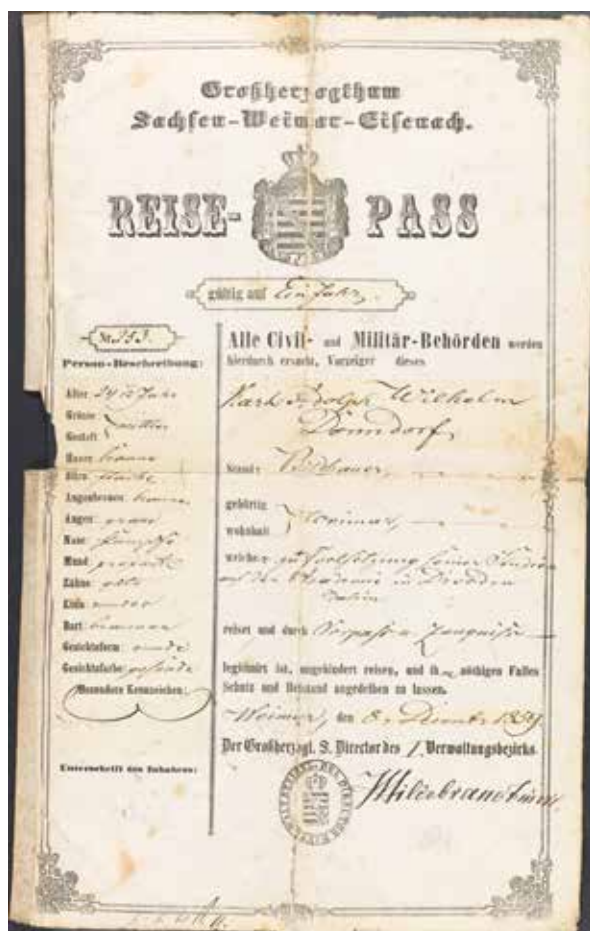 Großherzogthum
Sachsen-Weimar-Eisenach.
REISE-PASS
gültig auf Ein Jahr.
Nr. 253.
Person-Beschreibung:
Alter 24 Jahr
Grösse
Gestalt mittler
Haare braune
Stirn flache
Augenbrauen braune
Augen graue
Nase
Mund
Zähne
Kinn
Bart
Gesichtsform runde
Gesichtsfarbe gesunde
Besondere Kennzeichen:
Unterschrift des Inhabers:
Alle Civil- und Militär-Behörden werden
hierdurch ersucht, Vorzeiger dieses
Karl Adolph Wilhelm
Donndorf,
Stand: Bildhauer,
gebürtig
wohnhaft Weimar,
welcher zu Fortsetzung seiner Studien
auf der Akademie in Dresden
dahin
reiset und durch Vorpass u. Zeugnisse
legitimirt ist, ungehindert reisen, und ihm nöthigen Falles
Schutz und Beistand angedeihen zu lassen.
Weimar, den 8. December 1859.
Der Großherzogl. S. Director des I. Verwaltungsbezirks.